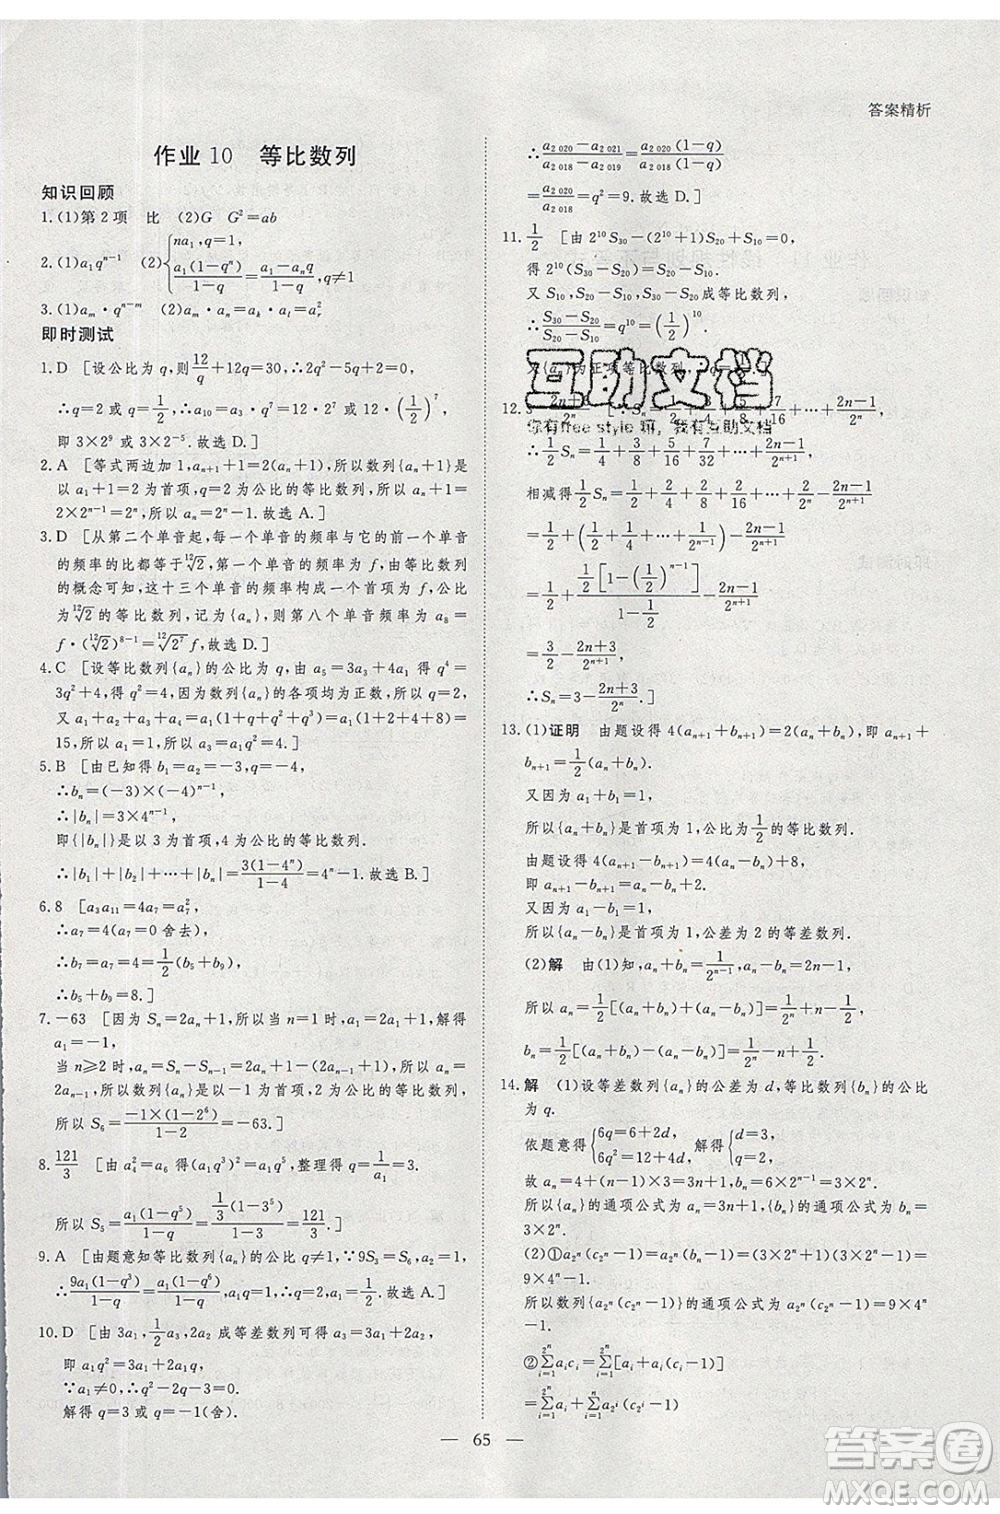 答案精析
作业 10　等比数列
知识回顾
1.(1)第 2 项　比　(2)G　G²=ab
2.(1)a₁qⁿ⁻¹　(2){na₁,q=1, a₁(1-qⁿ)/(1-q)=(a₁-aₙq)/(1-q),q≠1
3.(1)aₘ·qⁿ⁻ᵐ　(2)aₘ·aₙ=aₖ·aₗ=aᵣ²
即时测试
1.D　[设公比为 q,则 12/q+12q=30,∴2q²-5q+2=0,
∴q=2 或 q=1/2,∴a₁₀=a₃·q⁷=12·2⁷或 12·(1/2)⁷,
即 3×2⁹ 或 3×2⁻⁵.故选 D.]
2.A　[等式两边加 1,aₙ₊₁+1=2(aₙ+1),所以数列{aₙ+1}是
以 a₁+1=2 为首项,q=2 为公比的等比数列,所以 aₙ+1=
2×2ⁿ⁻¹=2ⁿ,所以 aₙ=2ⁿ-1,故选 A.]
3.D　[从第二个单音起,每一个单音的频率与它的前一个单音
的频率的比都等于¹²√2,第一个单音的频率为 f,由等比数列
的概念可知,这十三个单音的频率构成一个首项为 f,公比为
¹²√2的等比数列,记为{aₙ},则第八个单音频率为 a₈=
f·(¹²√2)⁸⁻¹=¹²√2⁷ f,故选 D.]
4.C　[设等比数列{aₙ}的公比为 q,由 a₅=3a₃+4a₁ 得 q⁴=
3q²+4,得 q²=4,因为数列{aₙ}的各项均为正数,所以 q=2,
又 a₁+a₂+a₃+a₄=a₁(1+q+q²+q³)=a₁(1+2+4+8)=
15,所以 a₁=1,所以 a₃=a₁q²=4.]
5.B　[由已知得 b₁=a₂=-3,q=-4,
∴bₙ=(-3)×(-4)ⁿ⁻¹,
∴|bₙ|=3×4ⁿ⁻¹,
即{|bₙ|}是以 3 为首项,4 为公比的等比数列.
∴|b₁|+|b₂|+…+|bₙ|=3(1-4ⁿ)/(1-4)=4ⁿ-1.故选 B.]
6.8　[a₃a₁₁=4a₇=a₇²,
∴a₇=4(a₇=0 舍去),
∴b₇=a₇=4=1/2(b₅+b₉),
∴b₅+b₉=8.]
7.-63　[因为 Sₙ=2aₙ+1,所以当 n=1 时,a₁=2a₁+1,解得
a₁=-1,
当 n≥2 时,aₙ=Sₙ-Sₙ₋₁=2aₙ+1-(2aₙ₋₁+1),所以 aₙ=
2aₙ₋₁,所以数列{aₙ}是以-1 为首项,2 为公比的等比数列,
所以 S₆=-1×(1-2⁶)/(1-2)=-63.]
8.121/3　[由 a₄²=a₆ 得(a₁q³)²=a₁q⁵,整理得 q=1/a₁=3.
所以 S₅=a₁(1-q⁵)/(1-q)=1/3(1-3⁵)/(1-3)=121/3.]
9.A　[由题意知等比数列{aₙ}的公比 q≠1,∵9S₃=S₆,a₂=1,
∴9a₁(1-q³)/(1-q)=a₁(1-q⁶)/(1-q),a₁q=1,∴q=2,a₁=1/2.故选 A.]
10.D　[由 3a₁,1/2a₃,2a₂ 成等差数列可得 a₃=3a₁+2a₂,
即 a₁q²=3a₁+2a₁q.
∵a₁≠0,∴q²-2q-3=0.
解得 q=3 或 q=-1(舍).
∴(a₂₀₂₀-a₂₀₂₁)/(a₂₀₁₈-a₂₀₁₉)=a₂₀₂₀(1-q)/a₂₀₁₈(1-q)
=a₂₀₂₀/a₂₀₁₈=q²=9.故选 D.]
11.1/2　[由 2¹⁰S₃₀-(2¹⁰+1)S₂₀+S₁₀=0,
得 2¹⁰(S₃₀-S₂₀)=S₂₀-S₁₀.
又 S₁₀,S₂₀-S₁₀,S₃₀-S₂₀成等比数列,
∴(S₃₀-S₂₀)/(S₂₀-S₁₀)=q¹⁰=(1/2)¹⁰.
互助文档
你有free style嘛，我有互助文档
∴1/2Sₙ=1/4+3/8+5/16+7/32+…+(2n-1)/2ⁿ⁺¹,
相减得1/2Sₙ=1/2+2/4+2/8+2/16+…+2/2ⁿ-(2n-1)/2ⁿ⁺¹
=1/2+(1/2+1/4+…+1/2ⁿ⁻¹)-(2n-1)/2ⁿ⁺¹
=1/2+1/2[1-(1/2)ⁿ⁻¹]/(1-1/2)-(2n-1)/2ⁿ⁺¹
=3/2-(2n+3)/2ⁿ⁺¹,
∴Sₙ=3-(2n+3)/2ⁿ.]
13.(1)证明　由题设得 4(aₙ₊₁+bₙ₊₁)=2(aₙ+bₙ),即 aₙ₊₁+
bₙ₊₁=1/2(aₙ+bₙ).
又因为 a₁+b₁=1,
所以{aₙ+bₙ}是首项为 1,公比为1/2的等比数列.
由题设得 4(aₙ₊₁-bₙ₊₁)=4(aₙ-bₙ)+8,
即 aₙ₊₁-bₙ₊₁=aₙ-bₙ+2.
又因为 a₁-b₁=1,
所以{aₙ-bₙ}是首项为 1,公差为 2 的等差数列.
(2)解　由(1)知,aₙ+bₙ=1/2ⁿ⁻¹,aₙ-bₙ=2n-1,
所以 aₙ=1/2[(aₙ+bₙ)+(aₙ-bₙ)]=1/2ⁿ+n-1/2,
bₙ=1/2[(aₙ+bₙ)-(aₙ-bₙ)]=1/2ⁿ-n+1/2.
14.解　(1)设等差数列{aₙ}的公差为 d,等比数列{bₙ}的公比
为 q.
依题意得{6q=6+2d, 6q²=12+4d, 解得{d=3, q=2,
故 aₙ=4+(n-1)×3=3n+1,bₙ=6×2ⁿ⁻¹=3×2ⁿ.
所以{aₙ}的通项公式为 aₙ=3n+1,{bₙ}的通项公式为 bₙ=
3×2ⁿ.
(2)①a₂ₙ(c₂ₙ-1)=a₂ₙ(bₙ-1)=(3×2ⁿ+1)(3×2ⁿ-1)=
9×4ⁿ-1.
所以数列{a₂ₙ(c₂ₙ-1)}的通项公式为 a₂ₙ(c₂ₙ-1)=9×4ⁿ
-1.
②∑aᵢcᵢ=∑[aᵢ+aᵢ(cᵢ-1)]
=∑aᵢ+∑a₂ᵢ(c₂ᵢ-1)
65
答案圈
MXQE.COM